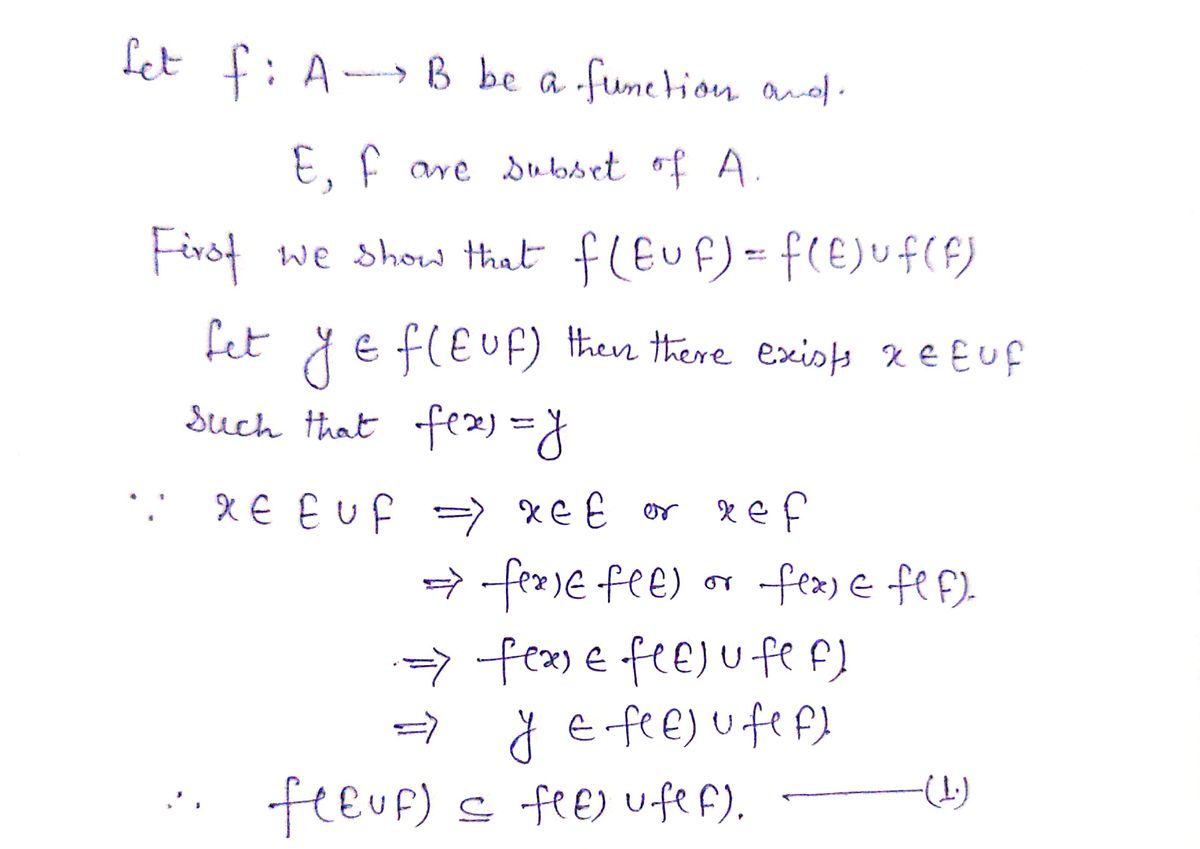 Let f : A → B be a function and.
E, F are subset of A.
First we show that f(E∪F) = f(E)∪f(F)
Let y ∈ f(E∪F) then there exists x ∈ E∪F
such that f(x) = y
∵ x ∈ E∪F ⇒ x∈E or x∈F
⇒ f(x)∈ f(E) or f(x) ∈ f(F).
⇒ f(x) ∈ f(E) ∪ f(F)
⇒ y ∈ f(E) ∪ f(F).
∴ f(E∪F) ⊆ f(E) ∪ f(F). —(1.)